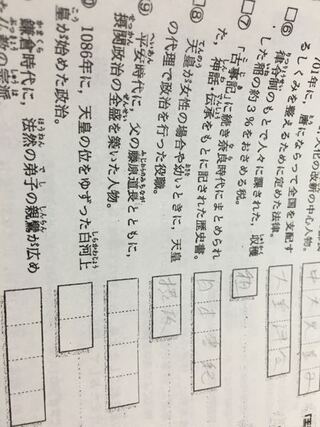 大化の改新の中心人物。
701年に,唐にならって全国を支配す
るしくみを整えるために定めた法律。
□6 律令制のもとで人々に課された,収穫
した稲の約3%をおさめる税。
□7 「古事記」に続き奈良時代にまとめられ
た,神話・伝承をもとに記された歴史書。
□8 天皇が女性の場合や幼いときに,天皇
の代理で政治を行った役職。
⑨ 平安時代に,父の藤原道長とともに,
摂関政治の全盛を築いた人物。
1086年に,天皇の位をゆずった白河上
皇が始めた政治。
鎌倉時代に,法然の弟子の親鸞が広め
大宝律令
租
日本書紀
摂政